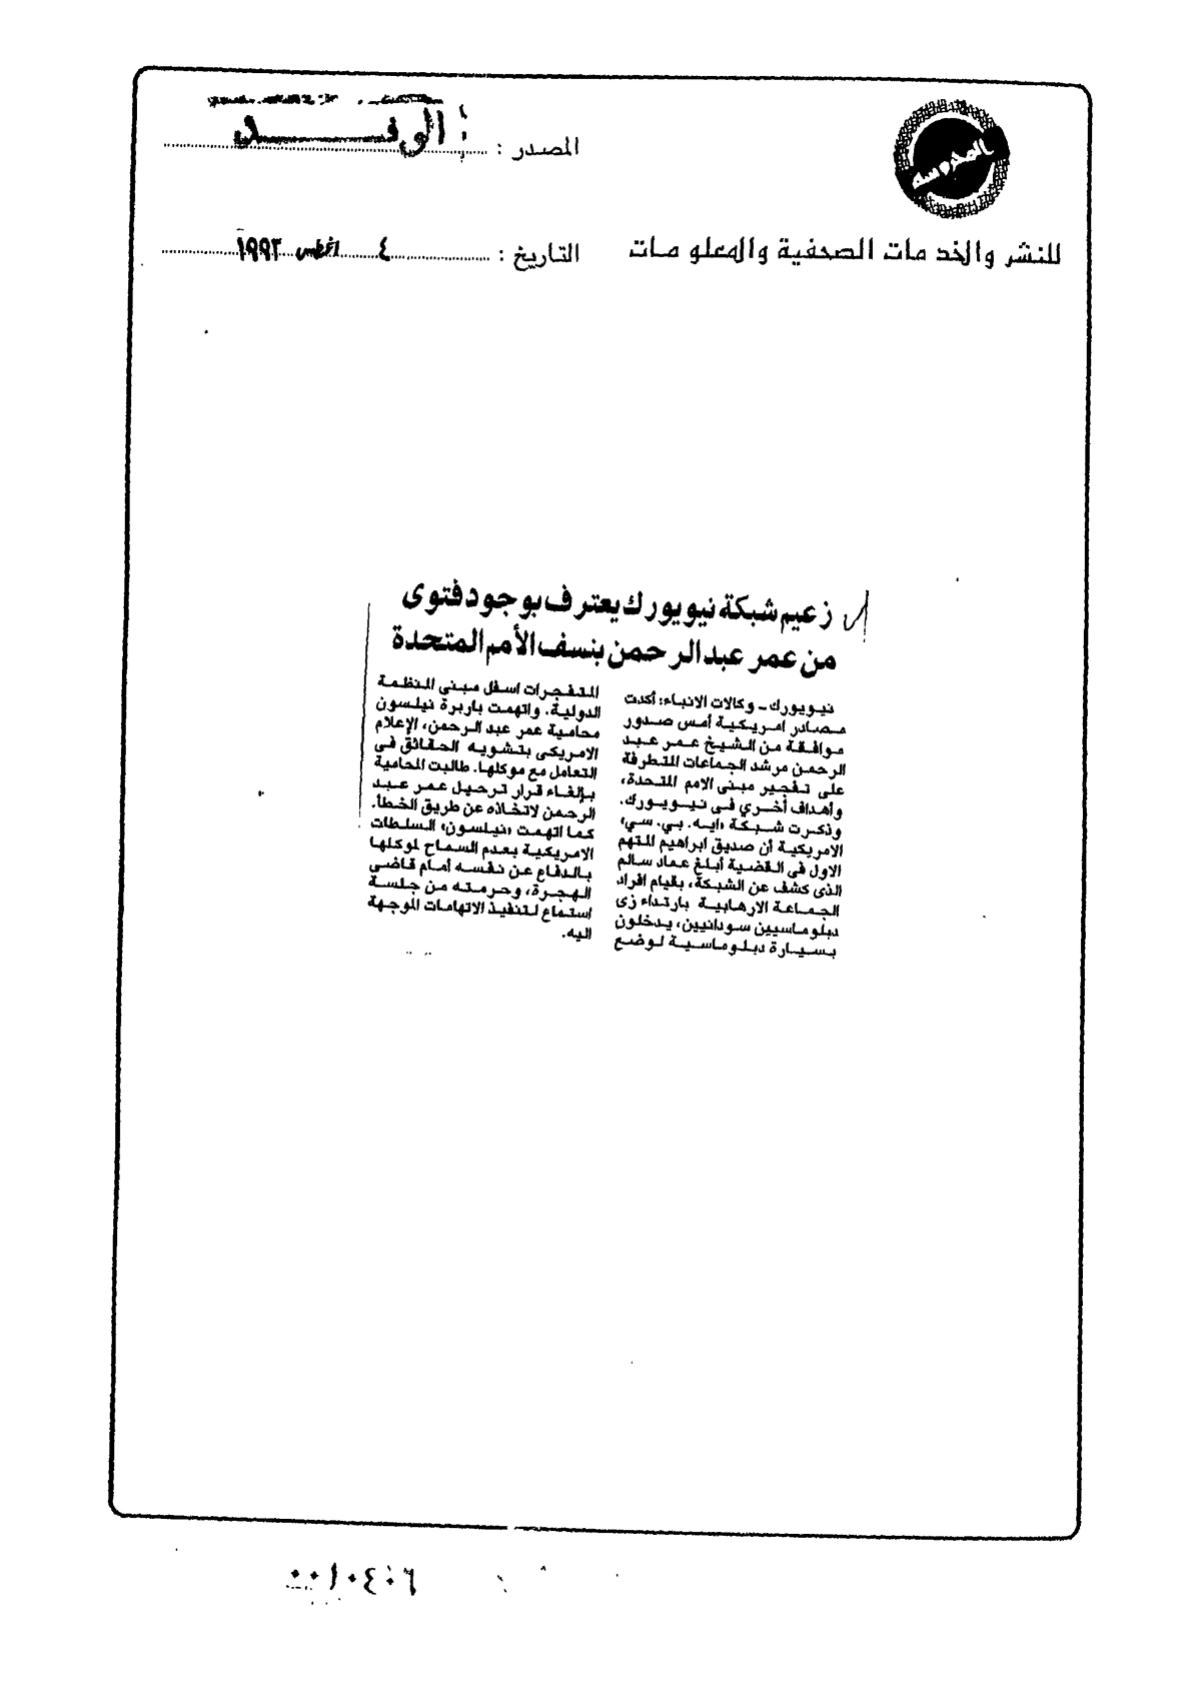 المحروسة
المصدر : الوفد
للنشر والخدمات الصحفية والمعلومات
التاريخ : ٤ اغسطس ١٩٩٣
زعيم شبكة نيويورك يعترف بوجود فتوى
من عمر عبدالرحمن بنسف الأمم المتحدة
نيويورك ـ وكالات الانباء: أكدت
مصادر امريكية أمس صدور
موافقة من الشيخ عمر عبد
الرحمن مرشد الجماعات المتطرفة
على تفجير مبنى الامم المتحدة،
وأهداف أخري فى نيويورك.
وذكرت شبكة «ايه. بي. سي»
الامريكية أن صديق ابراهيم المتهم
الاول فى القضية أبلغ عماد سالم
الذى كشف عن الشبكة، بقيام افراد
الجماعة الارهابية بارتداء زى
دبلوماسيين سودانيين، يدخلون
بسيارة دبلوماسية لوضع
المتفجرات اسفل مبنى المنظمة
الدولية. واتهمت باربرة نيلسون
محامية عمر عبد الرحمن، الإعلام
الامريكى بتشويه الحقائق فى
التعامل مع موكلها. طالبت المحامية
بإلغاء قرار ترحيل عمر عبد
الرحمن لاتخاذه عن طريق الخطأ.
كما اتهمت «نيلسون» السلطات
الامريكية بعدم السماح لموكلها
بالدفاع عن نفسه أمام قاضى
الهجرة، وحرمته من جلسة
استماع لتنفيذ الاتهامات الموجهة
اليه.